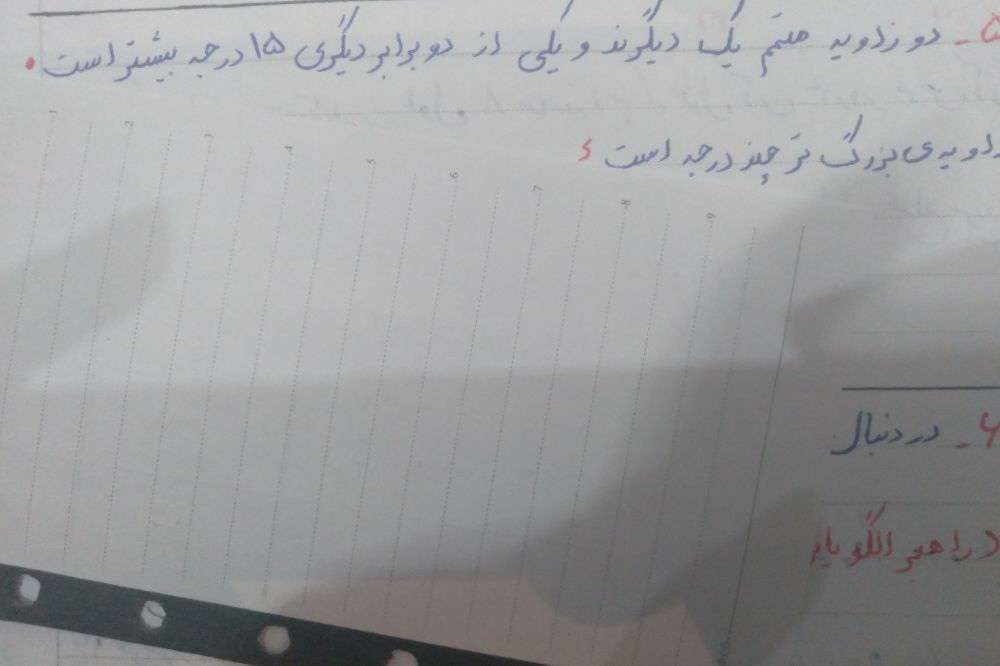 ۵- دو زاویه متمم یک دیگرند و یکی از دو برابر دیگری ۱۵ درجه بیشتر است.
زاویه‌ی بزرگ تر چند درجه است ؟
1 2 3 4 5 6 7 8 9
۶- در دنبال
(راهبرد الگویا